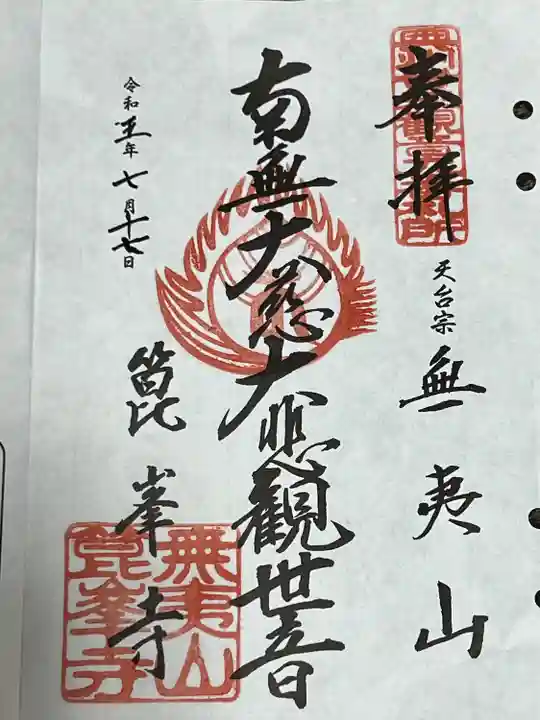 奉拝
天台宗 無夷山
南無大慈大悲観世音
箟峯寺
令和五年七月十七日
無夷山
箟峯寺